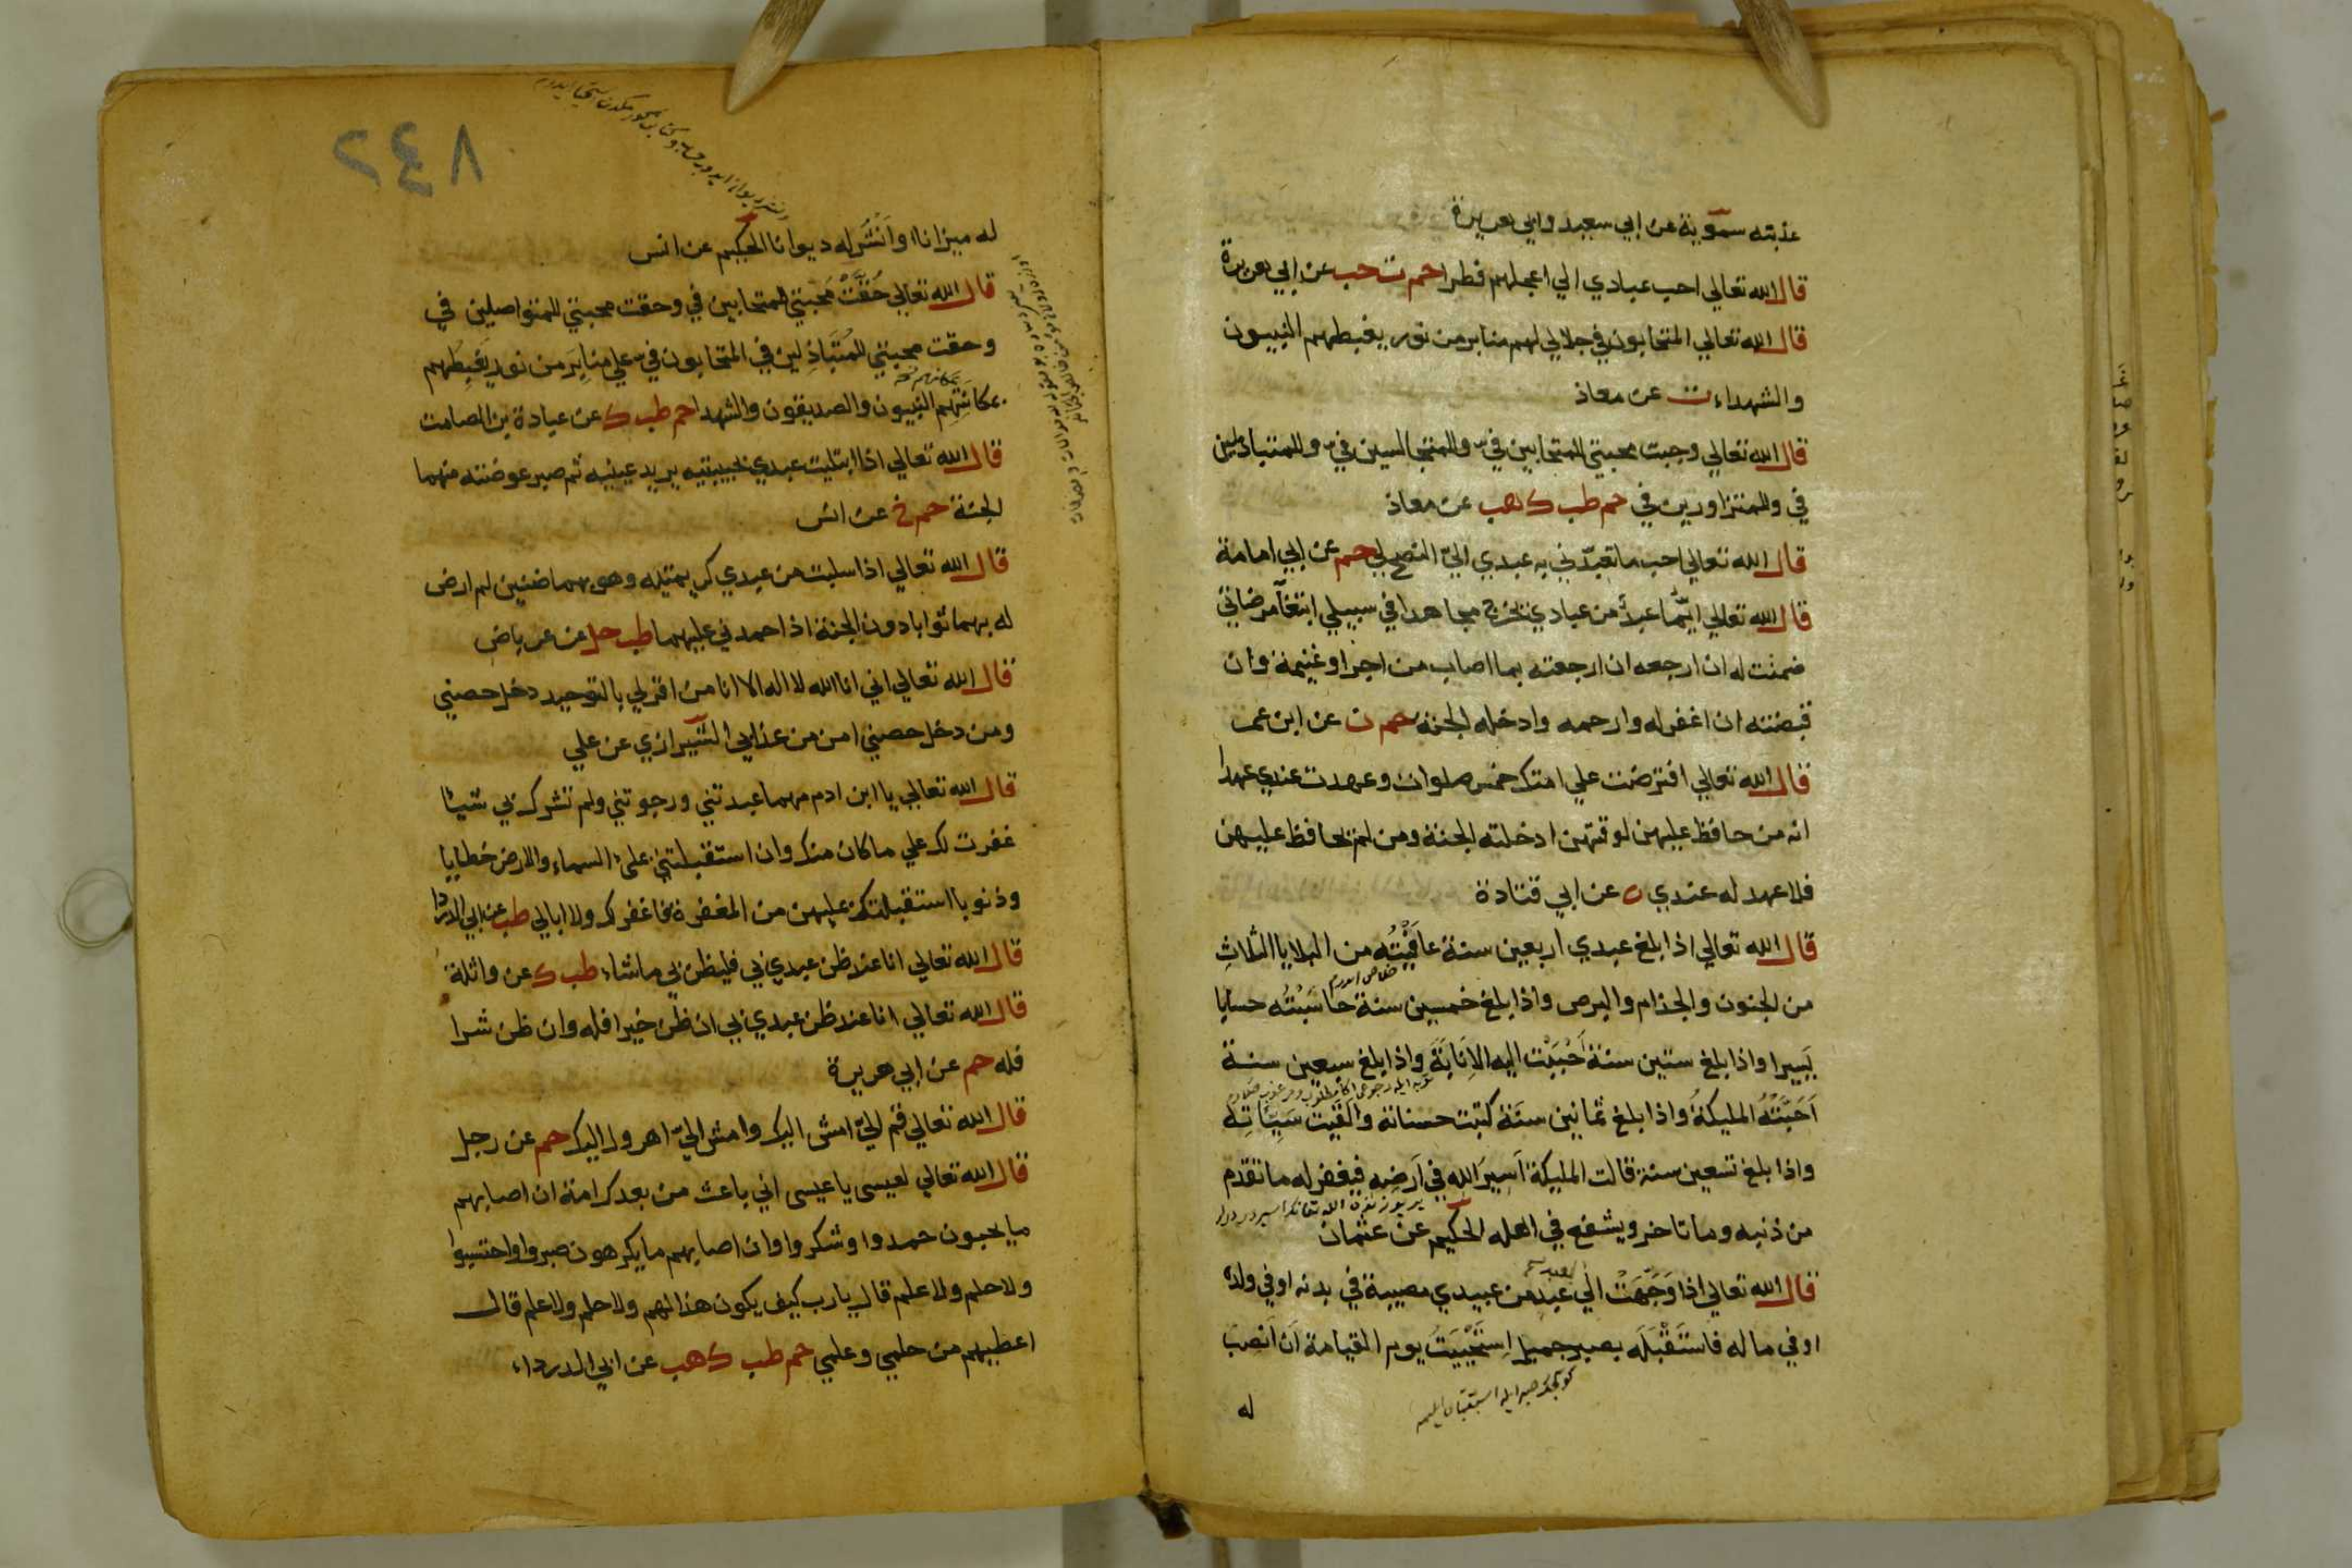 عذبته سموية عن ابي سعيد وابي هريرة
قال الله تعالي احب عبادي الي اعجلهم فطرا حم ت حب عن ابي هريرة
قال الله تعالي المتحابون في جلالي لهم منابر من نور يغبطهم النبيون
والشهداء ت عن معاذ
قال الله تعالي وجبت محبتي للمتحابين في وللمتجالسين في وللمتباذلين
في وللمتزاورين في حم طب ك هب عن معاذ
قال الله تعالي احب ما تعبدني به عبدي الي النصح لي حم عن ابي امامة
قال الله تعالي ايما عبد من عبادي يخرج مجاهدا في سبيلي ابتغا مرضاتي
ضمنت له ان ارجعه ان ارجعته بما اصاب من اجر او غنيمة وان
قبضته ان اغفر له وارحمه وادخله الجنة حم ن عن ابن عمر
قال الله تعالي افترضت علي امتك خمس صلوات وعهدت عندي عهدا
انه من حافظ عليهن لوقتهن ادخلته الجنة ومن لم يحافظ عليهن
فلا عهد له عندي ه عن ابي قتادة
قال الله تعالي اذا بلغ عبدي اربعين سنة عافَيْتُه من البلايا الثلاثِ
من الجنون والجذام والبرص واذا بلغ خمسين سنة حاسَبْتُه حسابا
يَسِيرا واذا بلغ ستين سنة حَبَّبْت اليه الاِنَابَةَ واذا بلغ سبعين سنة
اَحَبَّتْهُ المليكةُ واذا بلغ ثمانين سَنَة كتبت حسناته والقَيت سَيِّئَاتِه
واذا بلغ تسعين سنة قالت المليكة اَسِيرَ الله في اَرضِهِ فيغفر له ما تقدم
من ذنبه وما تاخر ويشفع في اهله الحكيم عن عثمان
قال الله تعالي اذا وَجَّهَتْ الي عبدٍ من عبيدي مصيبة في بدنه او في ولده
او في ماله فاستَقْبَلَه بصبر جميل اِستَحْيَيْتُ يوم القيامة اَن اَنْصِبَ
له
٨٤٢
له ميزانا او اَنْشُر له ديوانا الحكيم عن انس
قال الله تعالي حُقَّتْ مَحبتي للمتحابين في وحقت محبتي للمتواصلين في
وحقت محبتي للمُتَبَاذِلين في المتحابون في علي منابِرَ من نور يَغبِطُهم
بمكانتهم النبيون والصديقون والشهدا حم طب ك عن عبادة بن الصامت
قال الله تعالي اذا ابتليت عبدي بحبيبتيه يريد عينيه ثم صبر عوضته منهما
الجنة حم خ عن انس
قال الله تعالي اذا سلبت من عبدي كريمتيه وهو بهما ضنين لم ارض
له بهما ثوابا دون الجنة اذا حمدني عليهما طب حل عن عرباض
قال الله تعالي اني انا الله لا اله الا انا من اقر لي بالتوحيد دخل حصني
ومن دخل حصني امن من عذابي الشيرازي عن علي
قال الله تعالي يا ابن ادم مهما عبدتني ورجوتني ولم تشرك بي شيئا
غفرت لك علي ما كان منك وان استقبلتني بملئ السماء والارض خطايا
وذنوبا استقبلتك عليهن من المغفرة فاغفر لك ولا ابالي طب عن ابي الدردا
قال الله تعالي انا عند ظن عبدي بي فليظن بي ما شاء طب ك عن واثلة
قال الله تعالي انا عند ظن عبدي بي ان ظن خيرا فله وان ظن شرا
فله حم عن ابي هريرة
قال الله تعالي قم اليّ امش اليك وامش اليّ اهرول اليك حم عن رجل
قال الله تعالي لعيسى يا عيسى اني باعث من بعدك امة ان اصابهم
ما يحبون حمدوا وشكروا وان اصابهم ما يكرهون صبروا واحتسبوا
ولا حلم ولا علم قال يارب كيف يكون هذا لهم ولا حلم ولا علم قال
اعطيهم من حلمي وعلمي حم طب ك هب عن ابي الدرداء